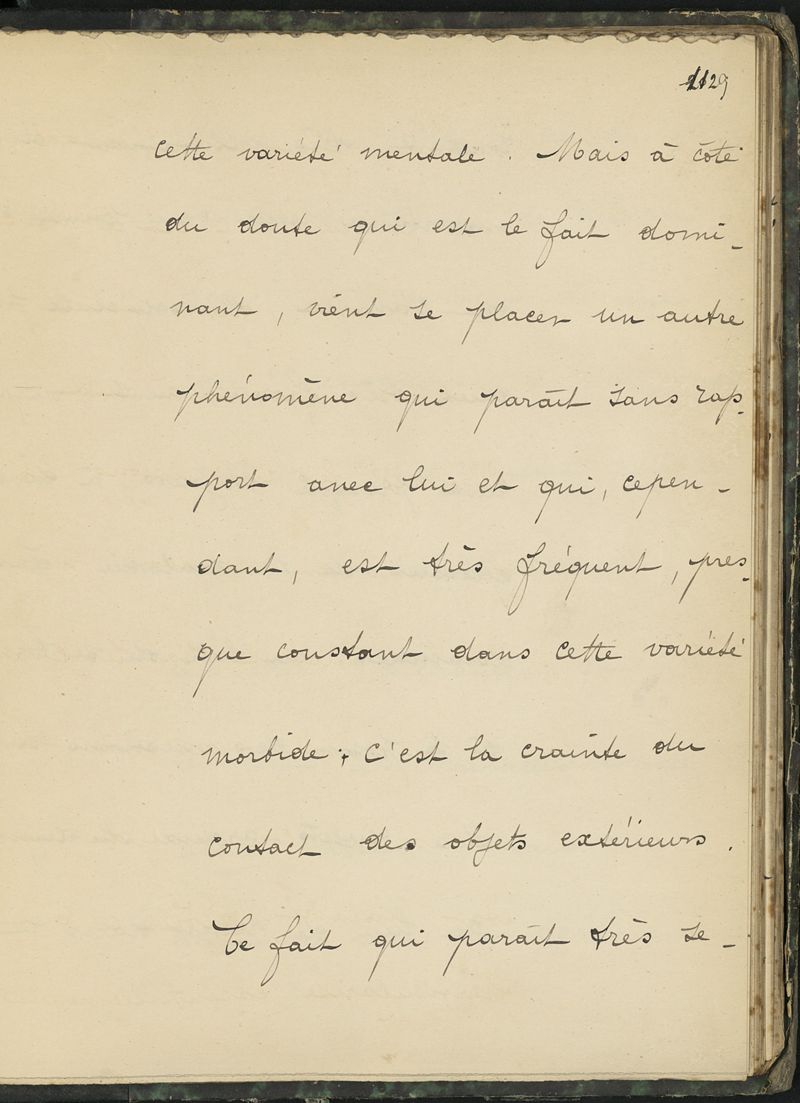 29
cette variété mentale. Mais à côté
du doute qui est le fait domi-
nant, vient se placer un autre
phénomène qui paraît sans rap-
port avec lui et qui, cepen-
dant, est très fréquent, pres-
que constant dans cette variété
morbide; c'est la crainte du
contact des objets extérieurs.
Ce fait qui paraît très se-